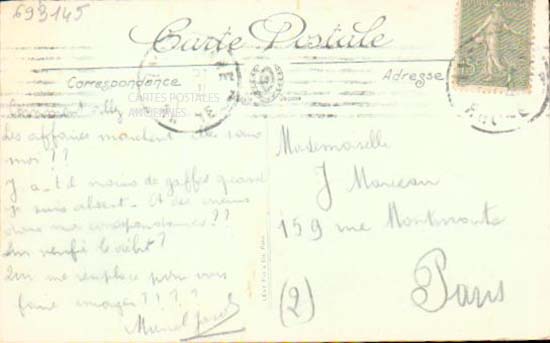 693145
Carte Postale
Correspondance
Adresse
CARTES POSTALES
ANCIENNES
Comment
Les affaires marchent elles sans
moi ??
Y a-t-il moins de gaffes quand
je suis absent - Et des
dans ma correspondance ??
Qui me remplace pour vous
faire enrager ????
Marcel
Mademoiselle
J Marceau
159 rue Montmartre
Paris
(2)